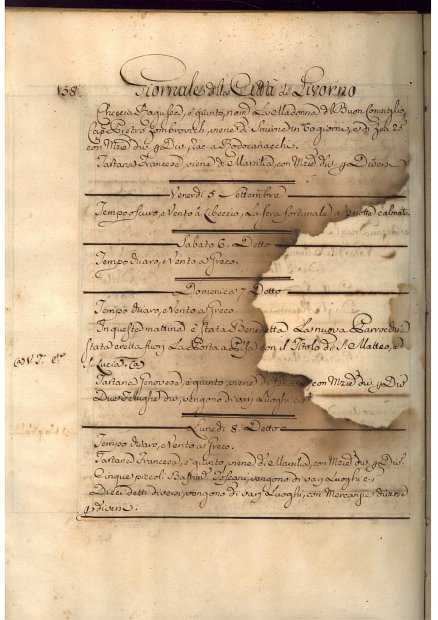 158. Giornale della Città di Livorno
Chechia Ragusea, e giunto, nom. La Madonna del Buon Consiglio,
Cap. Pietro Zombrovich, viene di Smirne in 50 giorni, e di Zea 25
con Mzie div. p Div., rac. a Rodocanacchi.
Tartana Francese, viene di Marsilia, con Mzie div. p Diversi
Venerdi 5 Settembre
Tempo oscuro, e Vento a Libeccio, La sera fortunale a ½ notte calmato.
Sabato 6. Detto
Tempo chiaro, e Vento a Greco.
Domenica 7 Detto
Tempo chiaro, e Vento a Greco
In questa mattina è stata Benedetta La nuova Parrocchia
stata eretta fuori La Porta a Pisa con il Titolo di S. Matteo, e
S. Lucia
Tartana Genovese, e giunto, viene di con Mzie div. p Div
Due Feluche div., vengono di varj Luoghi
Lunedi 8. Detto
Tempo chiaro, e Vento a Greco.
Tartana Francese, e giunto, viene di Marsilia, con Mzie div. p Div.
Cinque piccoli Bastim. Toscani, vengono di varj Luoghi e
Dieci detti diversi, vengono di varj Luoghi, con Mercanzie diverse
p diversi.